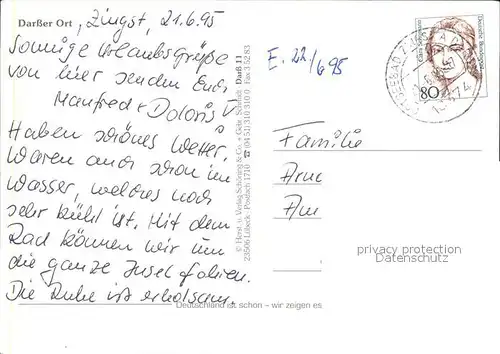 Darßer Ort , Zingst, 21.6.95
Sonnige Urlaubsgrüße
von hier senden Euch
Manfred + Doloris
Haben schönes Wetter,
waren auch schon im
Wasser, welches noch
sehr kühl ist. Mit dem
Rad können wir um
die ganze Insel fahren.
Die Ruhe ist erholsam.
E. 22/6 95
Deutsche Bundespost
80
Familie
Arne
Am
privacy protection
Datenschutz
© Horst. u. Verlag Schöning & Co. + Gebr. Schmidt Darß 11
23506 Lübeck · Postfach 1710 ☎ (04 51) 310 310 0 Fax 3 52 83
Deutschland ist schön – wir zeigen es